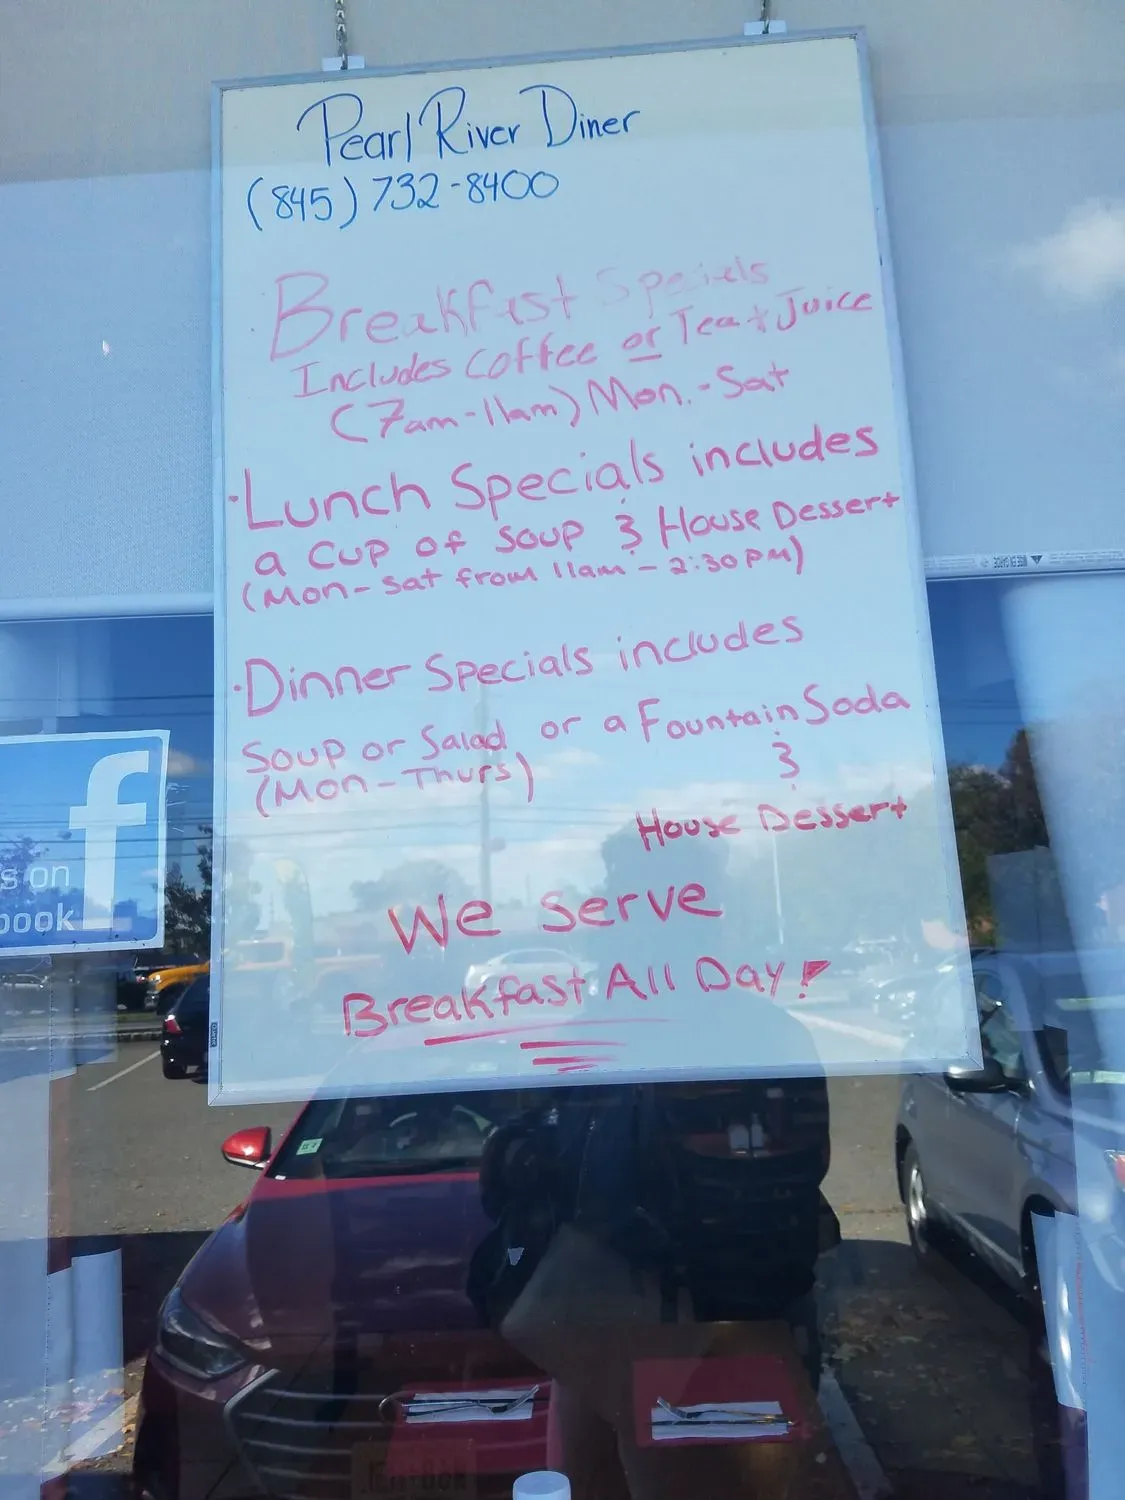 Pearl River Diner
(845) 732-8400
Breakfast Specials
Includes coffee or Tea & Juice
(7am-11am) Mon.-Sat
·Lunch Specials includes
a cup of soup & House Dessert
(Mon-Sat from 11am - 2:30PM)
·Dinner Specials includes
Soup or Salad or a Fountain Soda
(Mon-Thurs)
&
House Dessert
We serve
Breakfast All Day!
f
s on
book